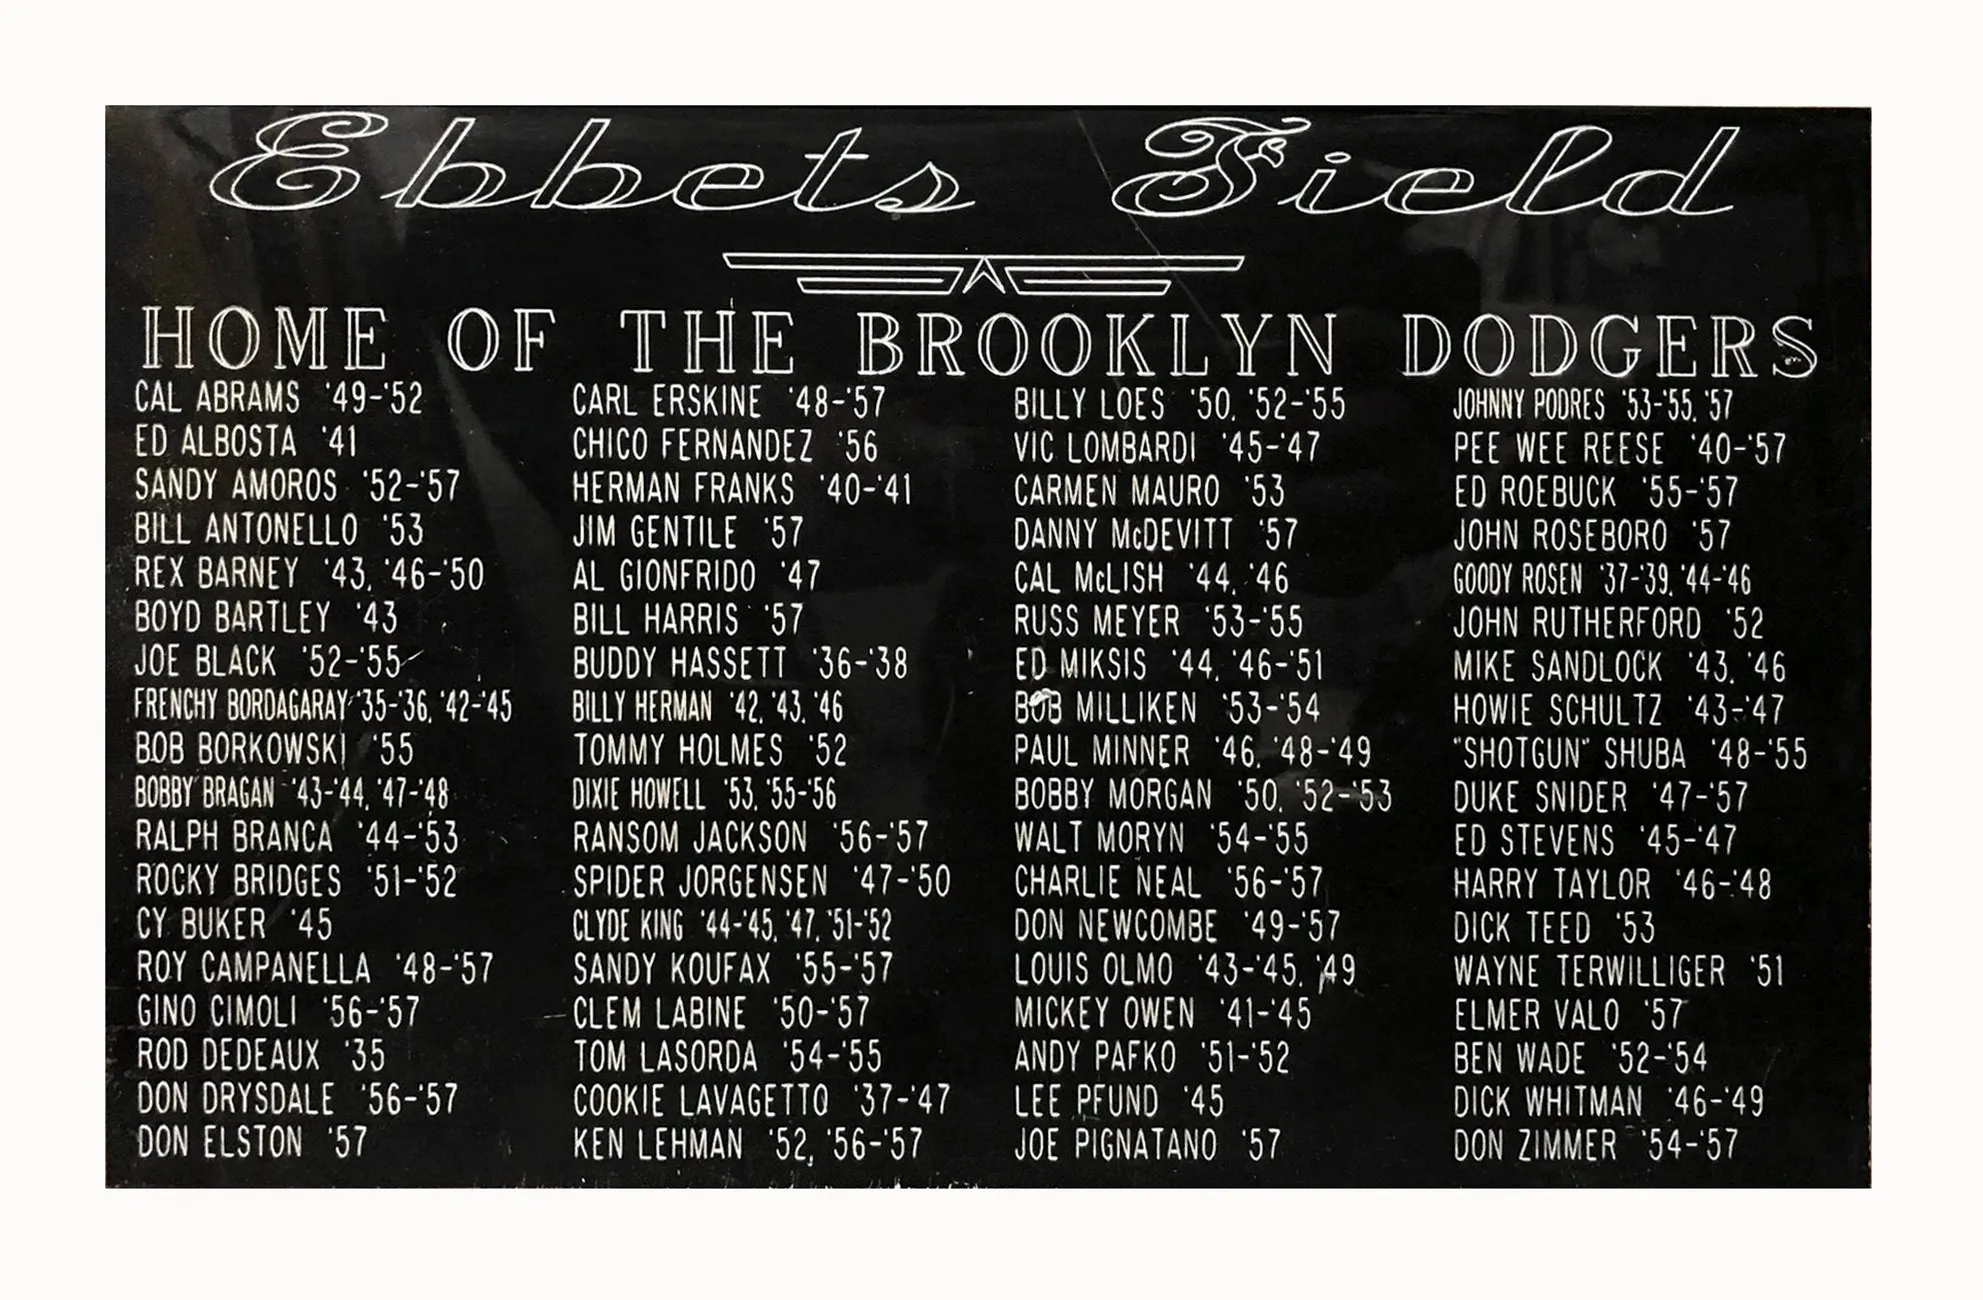 Ebbets Field
HOME OF THE BROOKLYN DODGERS
CAL ABRAMS '49-'52
ED ALBOSTA '41
SANDY AMOROS '52-'57
BILL ANTONELLO '53
REX BARNEY '43, '46-'50
BOYD BARTLEY '43
JOE BLACK '52-'55
FRENCHY BORDAGARAY '35-'36, '42-'45
BOB BORKOWSKI '55
BOBBY BRAGAN '43-'44, '47-'48
RALPH BRANCA '44-'53
ROCKY BRIDGES '51-'52
CY BUKER '45
ROY CAMPANELLA '48-'57
GINO CIMOLI '56-'57
ROD DEDEAUX '35
DON DRYSDALE '56-'57
DON ELSTON '57
CARL ERSKINE '48-'57
CHICO FERNANDEZ '56
HERMAN FRANKS '40-'41
JIM GENTILE '57
AL GIONFRIDO '47
BILL HARRIS '57
BUDDY HASSETT '36-'38
BILLY HERMAN '42, '43, '46
TOMMY HOLMES '52
DIXIE HOWELL '53, '55-'56
RANSOM JACKSON '56-'57
SPIDER JORGENSEN '47-'50
CLYDE KING '44-'45, '47, '51-'52
SANDY KOUFAX '55-'57
CLEM LABINE '50-'57
TOM LASORDA '54-'55
COOKIE LAVAGETTO '37-'47
KEN LEHMAN '52, '56-'57
BILLY LOES '50, '52-'55
VIC LOMBARDI '45-'47
CARMEN MAURO '53
DANNY McDEVITT '57
CAL McLISH '44, '46
RUSS MEYER '53-'55
ED MIKSIS '44, '46-'51
BOB MILLIKEN '53-'54
PAUL MINNER '46, '48-'49
BOBBY MORGAN '50, '52-'53
WALT MORYN '54-'55
CHARLIE NEAL '56-'57
DON NEWCOMBE '49-'57
LOUIS OLMO '43-'45, '49
MICKEY OWEN '41-'45
ANDY PAFKO '51-'52
LEE PFUND '45
JOE PIGNATANO '57
JOHNNY PODRES '53-'55, '57
PEE WEE REESE '40-'57
ED ROEBUCK '55-'57
JOHN ROSEBORO '57
GOODY ROSEN '37-'39, '44-'46
JOHN RUTHERFORD '52
MIKE SANDLOCK '43, '46
HOWIE SCHULTZ '43-'47
"SHOTGUN" SHUBA '48-'55
DUKE SNIDER '47-'57
ED STEVENS '45-'47
HARRY TAYLOR '46-'48
DICK TEED '53
WAYNE TERWILLIGER '51
ELMER VALO '57
BEN WADE '52-'54
DICK WHITMAN '46-'49
DON ZIMMER '54-'57